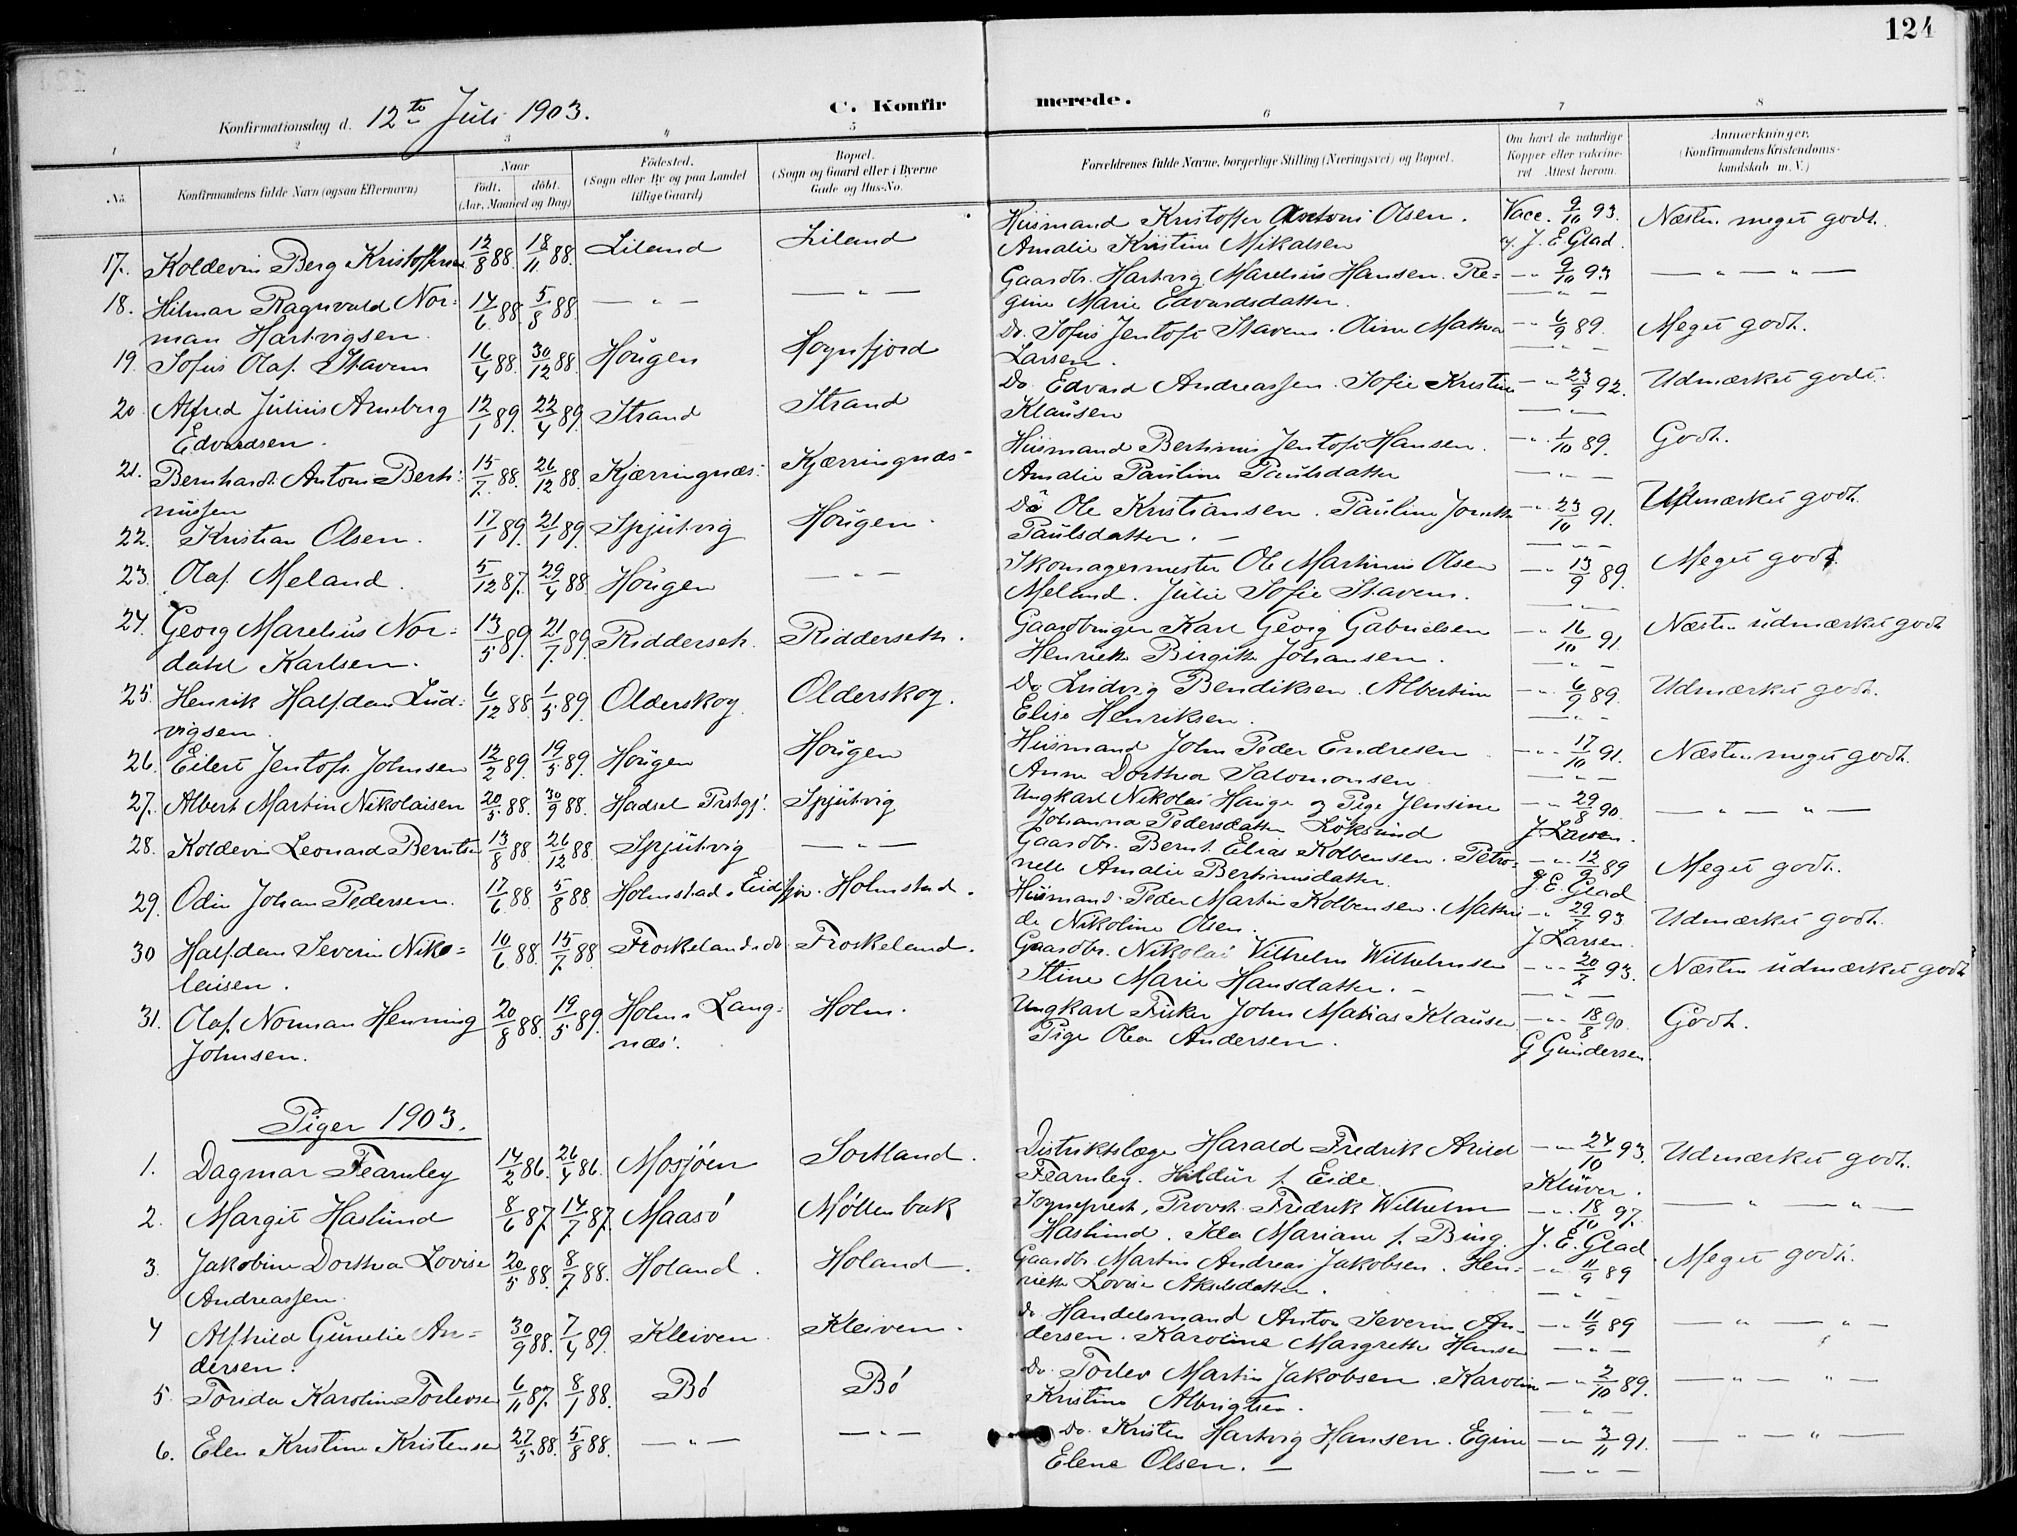 124
Konfirmationsdag d. 12te Juli 1903.
C. Konfirmerede.
1 2 3 4 5 6 7 8
No.
Konfirmandens fulde Navn (ogsaa Efternavn)
Naar
født. døbt.
(Aar, Maaned og Dag)
Fødested.
(Sogn eller By og paa Landet
tillige Gaard)
Bopæl.
(Sogn og Gaard eller i Byerne
Gade og Hus-No.
Forældrenes fulde Navne, borgerlige Stilling (Næringsvei) og Bopæl.
Om havt de naturlige
Kopper eller vakcine-
ret Attest herom.
Anmærkninger.
(Konfirmandens Kristendoms-
kundskab m. V.)
17. Koldevin Berg Kristoffersen 12/8 88. 18/11 88. Liland Liland Husmand Kristoffer Antoni Olsen. Vacc. 9/10 93. Næsten meget godt.
Amalie Kristine Mikalsen af J. E. Glad.
18. Hilmar Ragnvald Nor= 14/6 88 5/8 88. — " — — " — Gaardbr. Hartvig Marelius Hansen. Re= — " 9/10 93 — " — " —
man Hartvigsen. gine Marie Edvardsdatter. — " —
19. Sofus Olaf Stavem 16/4 88. 30/12 88. Hougen Hognfjord Do. Sofus Jentoft Stavem. Oline Mathea — " 6/9 89. Meget godt.
Larsen. — " —
20. Alfred Julius Arneberg 12/1 89. 22/4 89. Strand Strand Do. Edvard Andreassen. Sofie Kristine — " 23/9 92. Udmærket godt.
Edvardsen. Klausen — " —
21. Bernhardt Antoni Berti= 15/7 88. 26/12 88. Kjærringnæs. Kjærringnæs Husmand Bertinius Jentoft Hansen. — " 1/10 89. Godt.
nussen Amalie Pauline Paulsdatter — " —
22. Kristian Olsen. 17/1 89. 21/1 89. Spjutvig Hougen. Do Ole Kristiansen. Pauline Jonette — " 23/10 91. Udmærket godt.
Paulsdatter. — — " —
23. Olaf Meland. 5/12 87. 29/4 88. Hougen — " — Skomagermester Ole Martinus Olsen — " 13/9 89. Meget godt.
Meland. Julie Sofie Stavem. — " —
24. Georg Marelius Nor= 13/5 89. 21/7 89. Riddersetr. Riddersetr. Gaardbruger Karl Georg Gabrielsen — " 16/10 91. Næsten udmærket godt
dahl Karlsen. Henriette Birgitte Johansen. — " —
25. Henrik Halfdan Lud= 6/12 88. 1/5 89. Olderskog Olderskog. Do Ludvig Bendiksen. Albertine — " 6/9 89. Udmærket godt.
vigsen. Elise Henriksen. — " —
26. Eilert Jentoft Johnsen 12/2 89. 19/5 89. Hougen Hougen Husmand John Peder Endresen — " 17/10 91. Næsten meget godt.
Anne Dorthea Salomonsen — " —
27. Albert Martin Nikolaisen 20/5 88. 30/9 88. Hadsel Prstgj. Spjutvig Ungkarl Nikolai Hauge og Pige Jensine — " 29/8 90. — " — " —
Johanna Pedersdatter Løksund J. Larsen.
28. Koldevin Leonard Berntsen 13/8 88. 26/12 88. Spjutvig — " — Gaardbr. Bernt Elias Kolbensen. Petro= — " 12/9 89 Meget godt.
nelle Amalie Bertinusdatter. J. E. Glad
29. Odin Johan Pedersen. 17/6 88. 5/8 88 Holmstad. Eidsfjor. Holmstad. Husmand. Peder Martin Kolbensen. Matil= — " 29/7 93 Udmærket godt.
de Nikoline Olsen. J. Larsen.
30 Halfdan Severin Niko= 10/6 88. 15/7 88. Froskeland. do. Froskeland. Gaardbr. Nikolai Vilhelm Wilhelmsen — " 20/7 93. Næsten udmærket godt
laisen. Stine Marie Hansdatter. — — " —
31. Olaf Norman Henning 20/8 88. 19/5 89. Holm. Lang= Holm. Ungkarl Fisker John Matias Klausen — " 18/8 90. Godt.
Johnsen. næs. Pige Olea Andersen. G. Gundersen.
Piger 1903.
1. Dagmar Fearnley 14/2 86. 26/4 86. Mosjøen Sortland. Distriktslæge Harald Fredrik Arild — " 24/10 93. Udmærket godt.
Fearnley. Hildur f. Eide Klüver.
2. Margit Haslund 8/6 87. 14/7 87. Maasø Møllenbak Sogneprest, Provst Fredrik Wilhelm — " 18/10 97. — " — " —
Haslund. Ida Mariane f. Bing. J. E. Glad
3. Jakobine Dorthea Lovise 20/5 88. 8/7 88. Holand. Holand. Gaardbr. Martin Andreas Jakobsen. Hen= — " 11/9 89 Meget godt.
Andreassen. riette Lovise Akselsdatter. — " —
4 Alfhild Gunelie An= 30/9 88. 7/4 89. Kleiven Kleiven. do Handelsmand Anton Severin An= — " 11/9 89 — " — " —
dersen. dersen. Karoline Margrethe Hansen — " —
5. Torida Karoline Torlevsen 6/11 87. 8/1 88. Bø Bø Do. Torlev Martin Jakobsen. Karoline — " 2/10 89. — " — " —
Kristine Albrigtsen. — " —
6. Elen Kristine Kristensen 27/5 88. 5/8 88. — " — — " — Do. Kristen Hartvig Hansen. Egine — " 3/11 91. — " — " —
Elene Olsen. — — " —